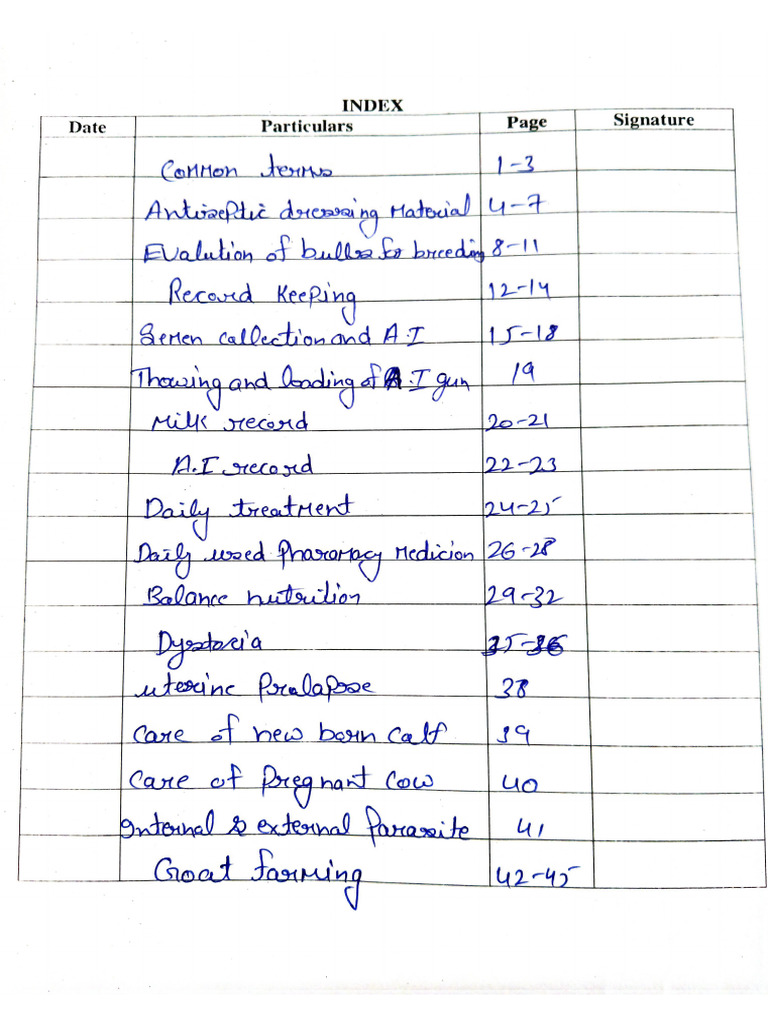 INDEX
Date Particulars Page Signature
Common terms 1-3
Antiseptic dressing Material 4-7
Evalution of bulls for breeding 8-11
Record Keeping 12-14
Semen collection and A.I 15-18
Thowing and loading of A.I gun 19
Milk record 20-21
A.I record 22-23
Daily treatment 24-25
Daily used Pharomacy Medicion 26-28
Balance nutrition 29-32
Dystocia 35-36
uterine Pralapse 38
Care of new born calf 39
Care of Pregnant Cow 40
Internal & external Parasite 41
Goat farming 42-45